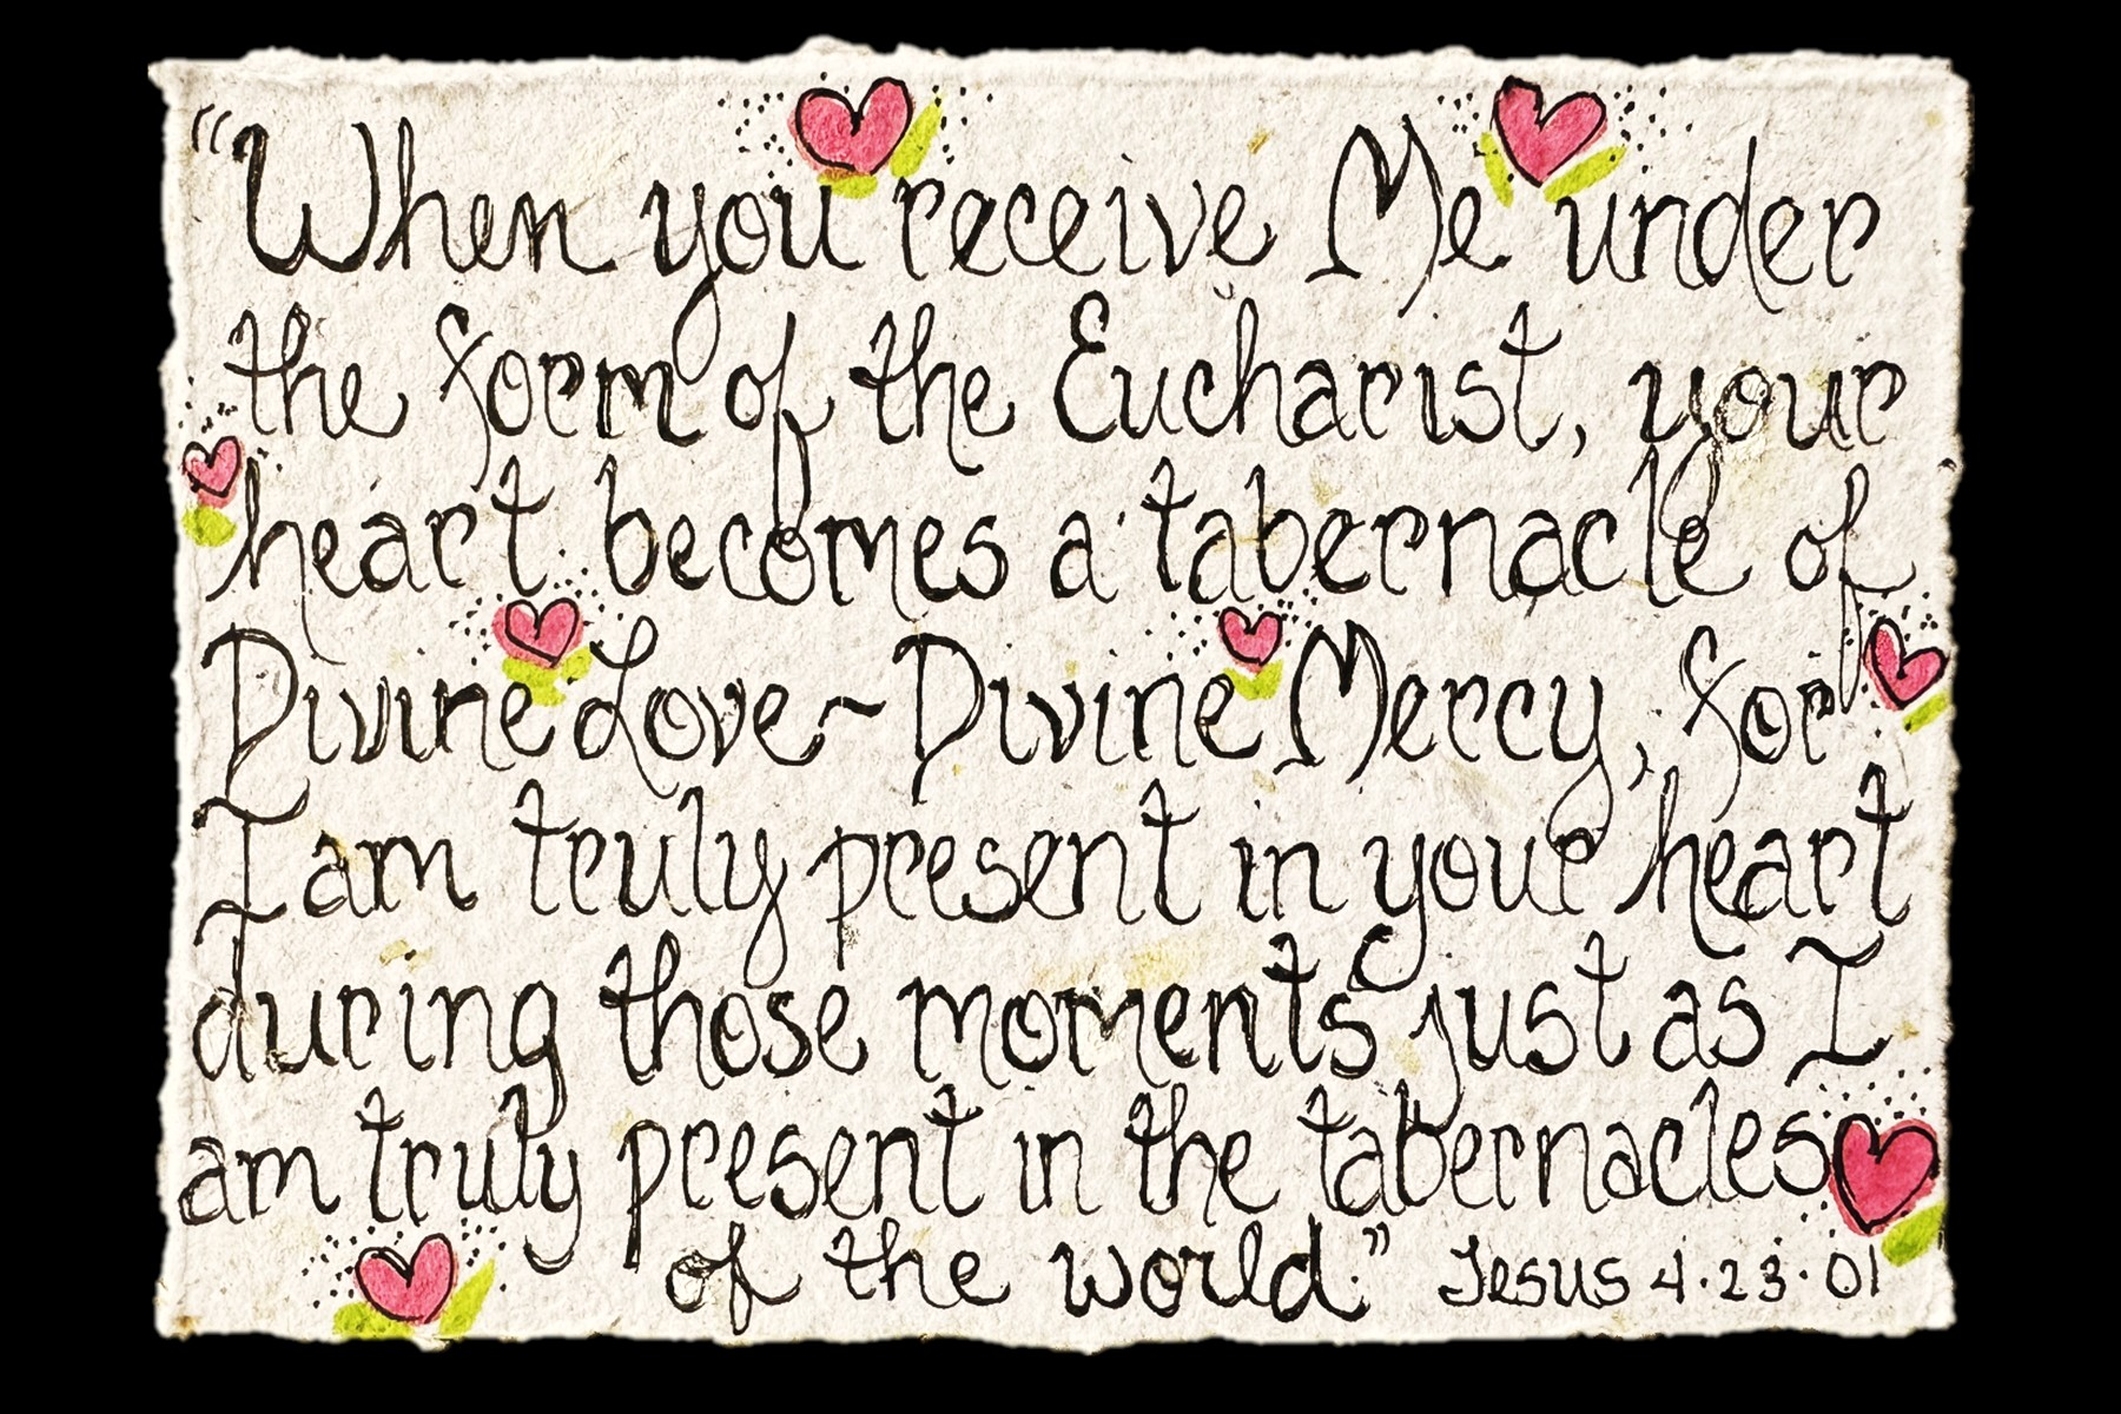 “When you receive Me under
the form of the Eucharist, your
heart becomes a tabernacle of
Divine Love~Divine Mercy, for
I am truly present in your heart
during those moments just as I
am truly present in the tabernacles
of the world.” Jesus 4·23·01